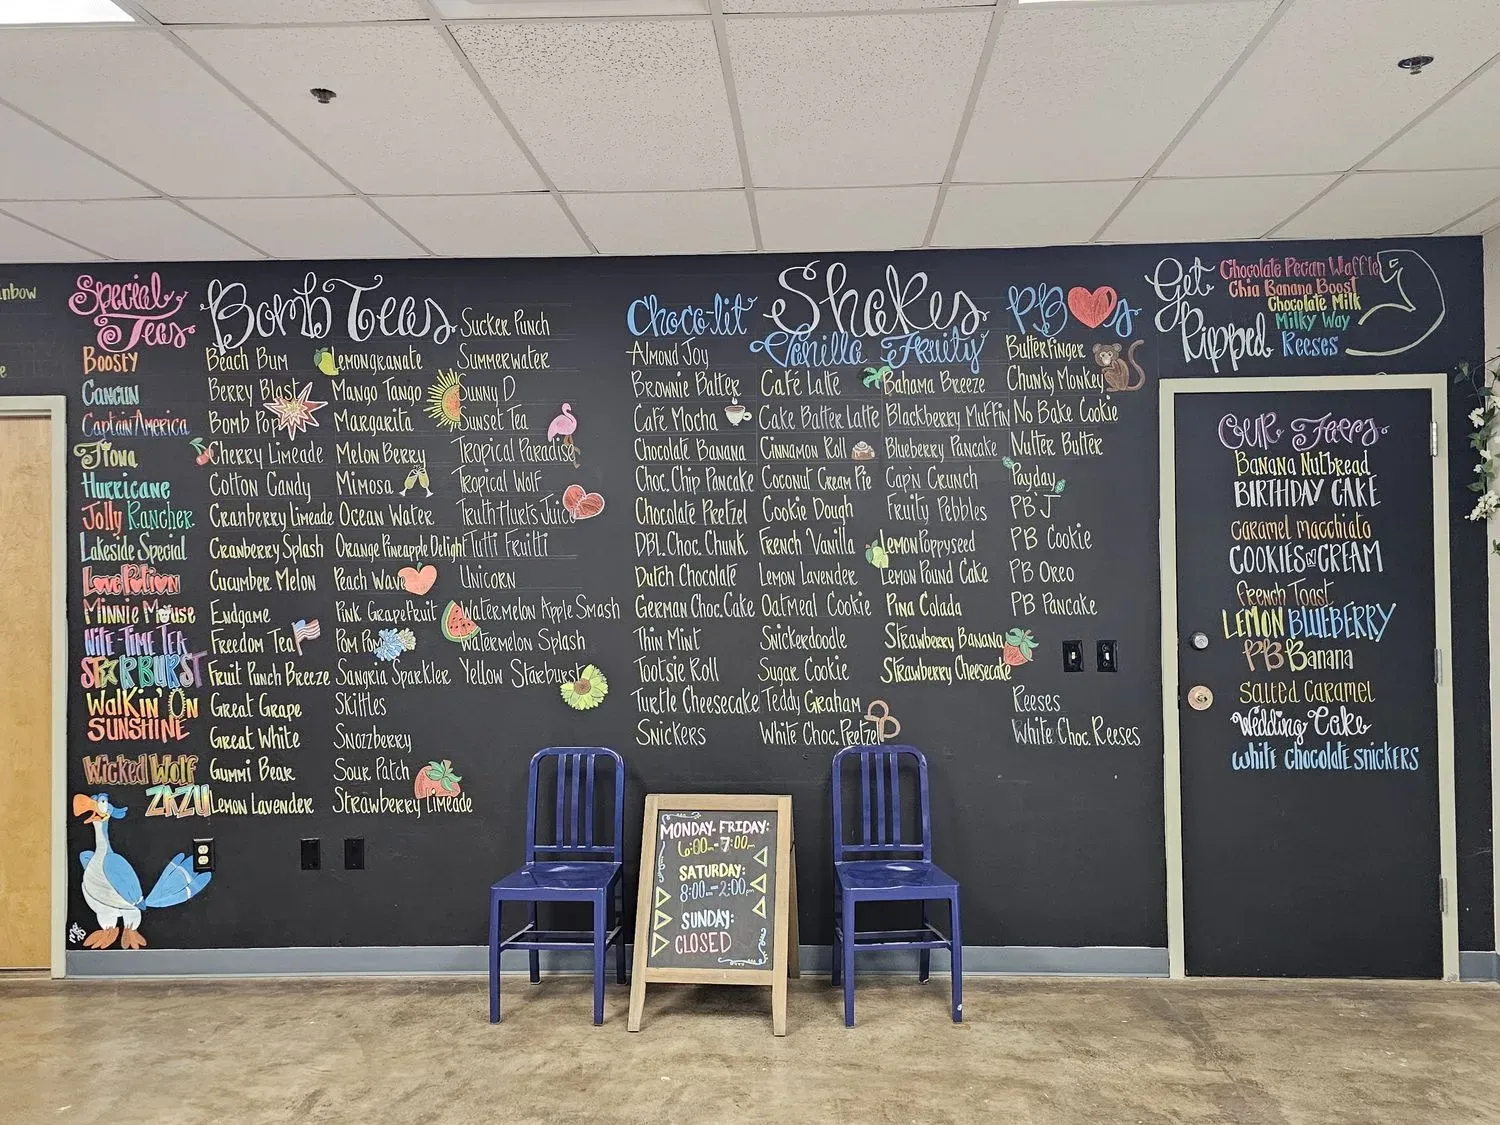 nbow
e
Special
Teas
Boosty
Cancun
Captain America
Fiona
Hurricane
Jolly Rancher
Lakeside Special
Love Potion
Minnie Mouse
Nite-Time Tea
Starburst
Walkin' On
Sunshine
Wicked Wolf
ZAZU
Bomb Teas
Beach Bum
Berry Blast
Bomb Pop
Cherry Limeade
Cotton Candy
Cranberry Limeade
Cranberry Splash
Cucumber Melon
Endgame
Freedom Tea
Fruit Punch Breeze
Great Grape
Great White
Gummi Bear
Lemon Lavender
Lemongranate
Mango Tango
Margarita
Melon Berry
Mimosa
Ocean Water
Orange Pineapple Delight
Peach Wave
Pink Grapefruit
Pom Pom
Sangria Sparkler
Skittles
Snozzberry
Sour Patch
Strawberry Limeade
Sucker Punch
Summerwater
Sunny D
Sunset Tea
Tropical Paradise
Tropical Wolf
Truth Hurts Juice
Tutti Fruitti
Unicorn
Watermelon Apple Smash
Watermelon Splash
Yellow Starburst
Shakes
Choco-lit
Almond Joy
Brownie Batter
Café Mocha
Chocolate Banana
Choc. Chip Pancake
Chocolate Pretzel
Dbl. Choc. Chunk
Dutch Chocolate
German Choc. Cake
Thin Mint
Tootsie Roll
Turtle Cheesecake
Snickers
Vanilla
Café Latte
Cake Batter Latte
Cinnamon Roll
Coconut Cream Pie
Cookie Dough
French Vanilla
Lemon Lavender
Oatmeal Cookie
Snickerdoodle
Sugar Cookie
Teddy Graham
White Choc. Pretzel
Fruity
Bahama Breeze
Blackberry Muffin
Blueberry Pancake
Cap'n Crunch
Fruity Pebbles
Lemon Poppyseed
Lemon Pound Cake
Pina Colada
Strawberry Banana
Strawberry Cheesecake
PB s
Butterfinger
Chunky Monkey
No Bake Cookie
Nutter Butter
Payday
PB J
PB Cookie
PB Oreo
PB Pancake
Reeses
White Choc. Reeses
Get
Ripped
Chocolate Pecan Waffle
Chia Banana Boost
Chocolate Milk
Milky Way
Reeses
Our Faves
Banana Nutbread
Birthday Cake
Caramel Macchiato
Cookies N Cream
French Toast
Lemon Blueberry
PB Banana
Salted Caramel
Wedding Cake
White Chocolate Snickers
Monday-Friday:
6:00am-7:00pm
Saturday:
8:00am-2:00pm
Sunday:
Closed